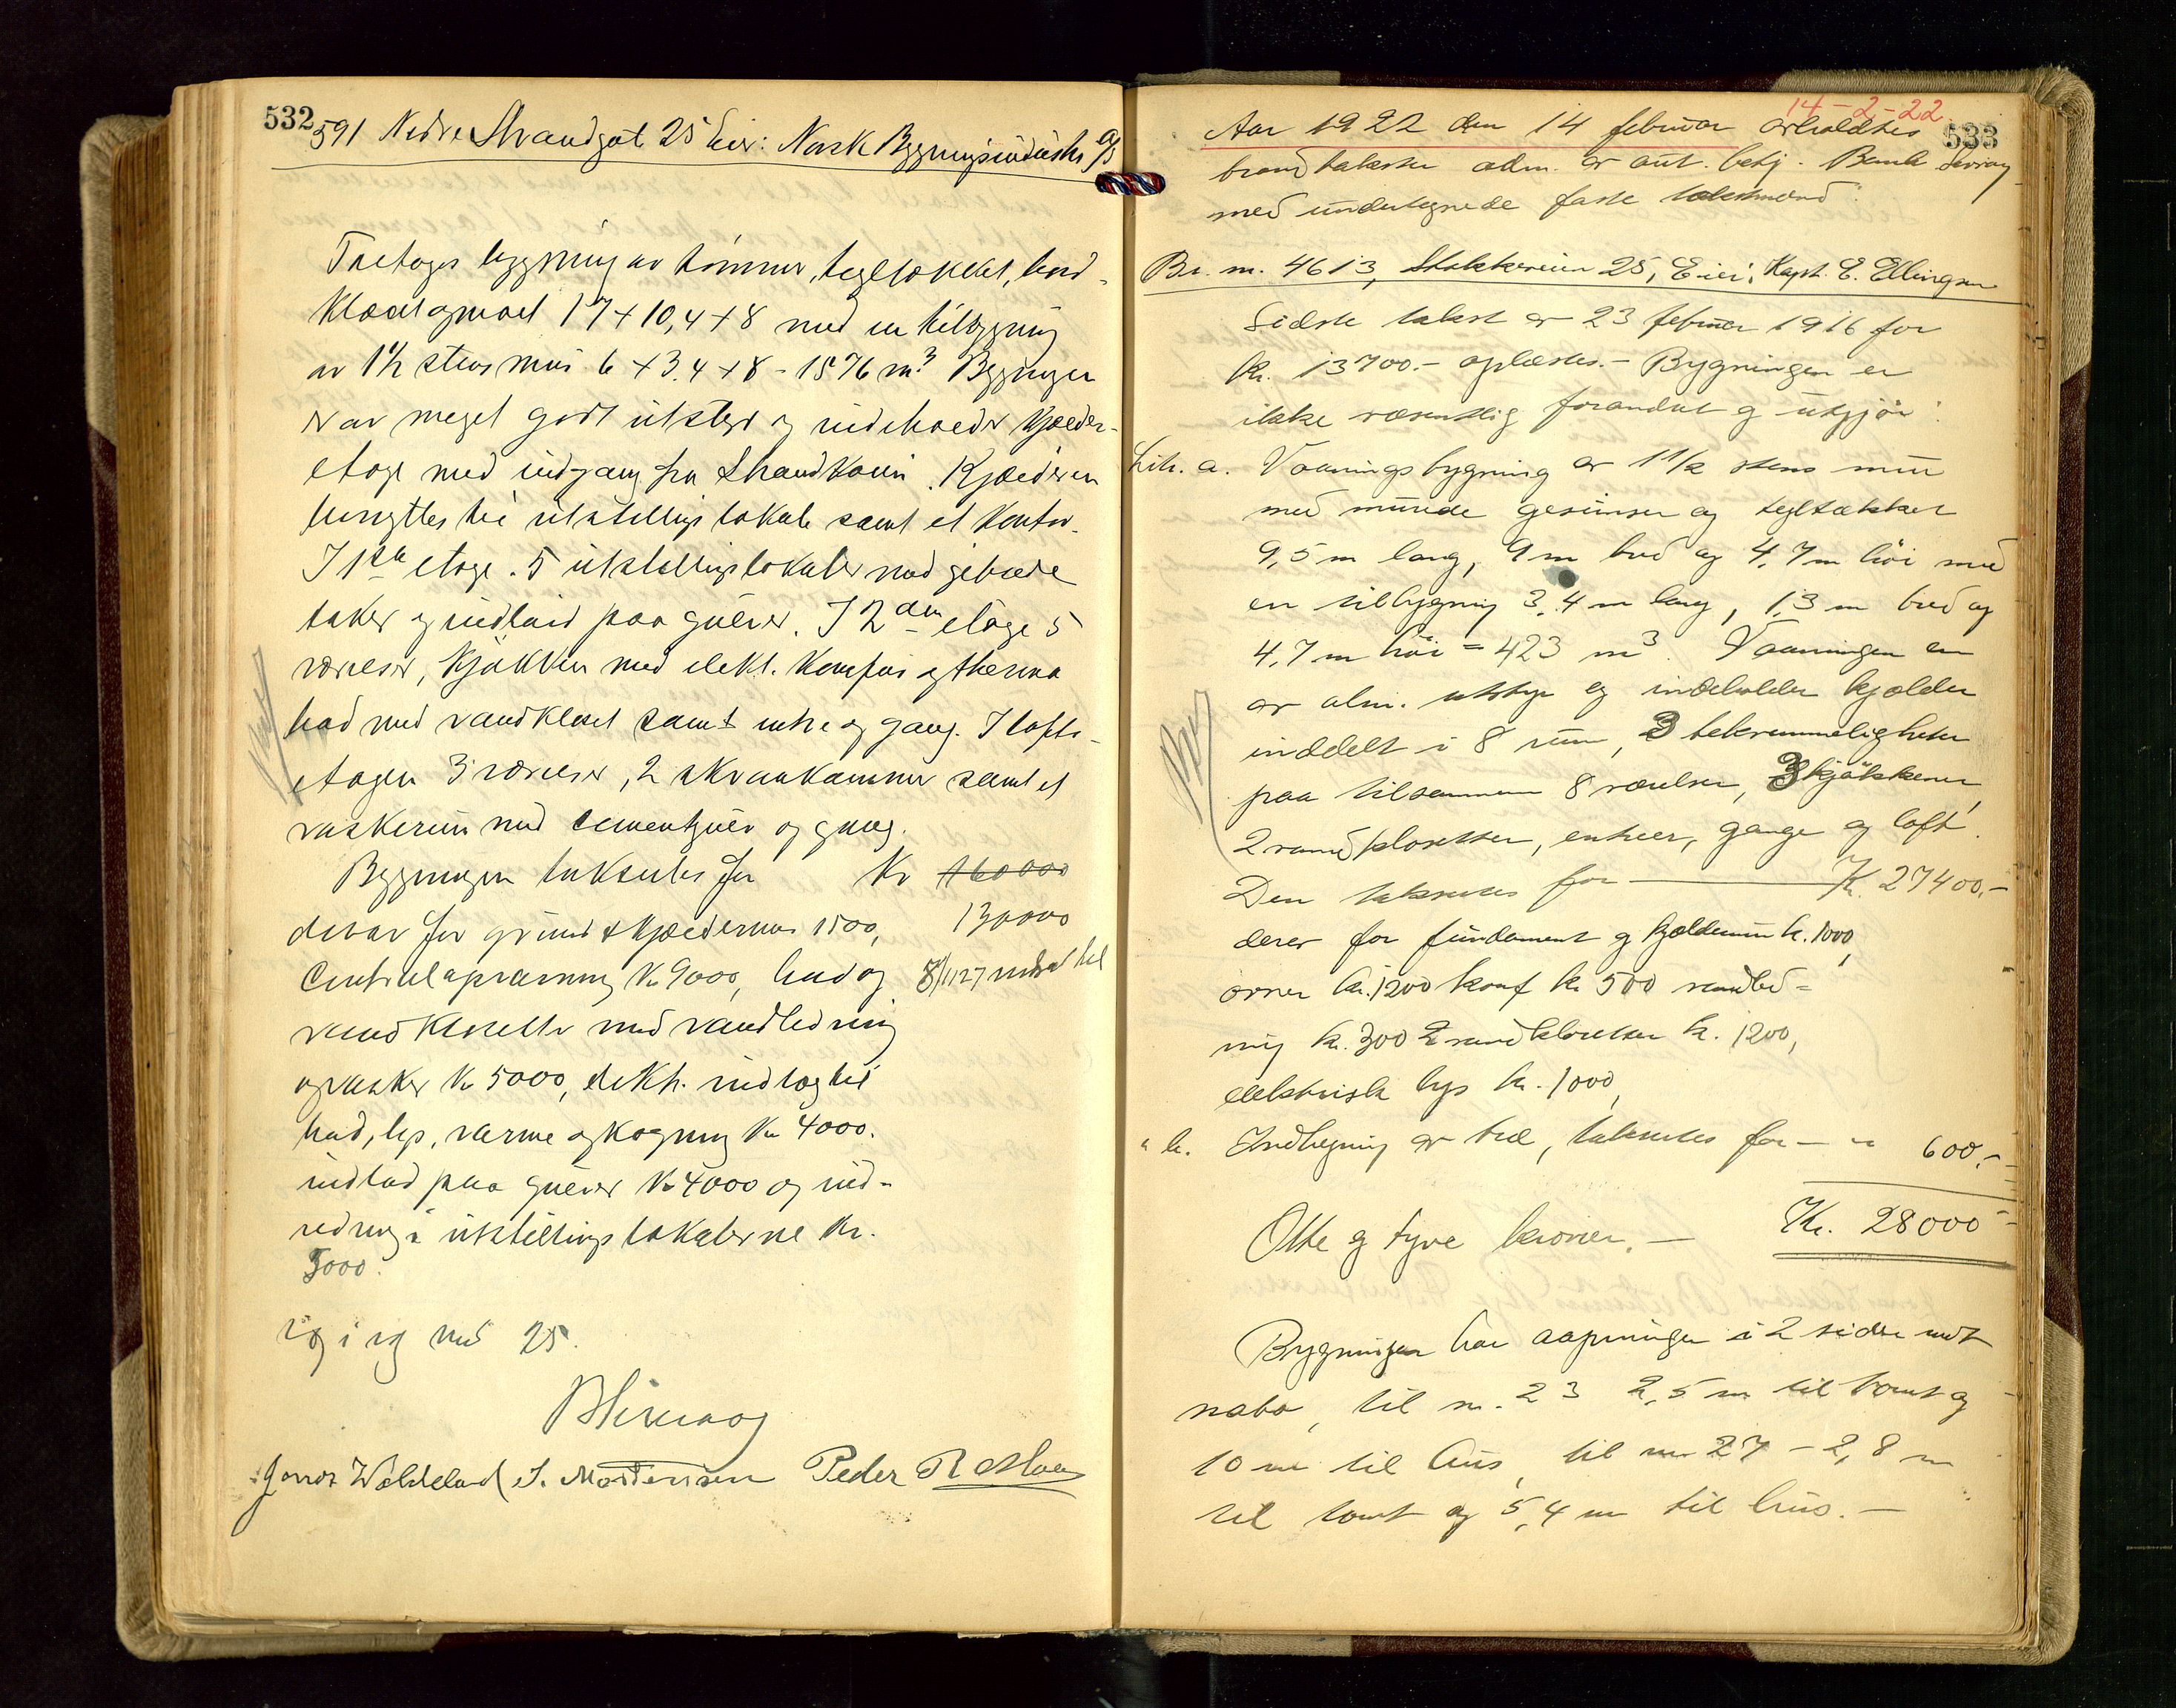 532
591 Nedre Strandgat 25 Eier: Norsk Bygningsindustri A/S
Toetages bygning av tømmer, tegltækket, bord-
klædt og malt 17 + 10,4 + 8 med en tilbygning
av 1½ stens mur 6 + 3.4 + 8 - 1576 m³ Bygningen
er av meget godt utstyr og indeholder kjælder-
etage med indgang fra Strandkaien. Kjælderen
benyttes til utstillingslokale samt et kontor.
I 1ste etage. 5 utstillingslokaler med
taker og indlaid paa gulver. I 2den etage 5
værelser, kjøkken med elekt. komfur og therma
bad med vandkloset samt entre og gang. I lofts-
etagen 3 værelser, 2 skraakammer samt et
vaskerum med cementgulv og gang.
Bygningen taksertes for Kr 160000
derav for grund & kjældermur 1500, 130000
Centralopvarming Kr 9000, bad og 8/1127 nedsat til
vandklosetter med vandledning
og vasker Kr 5000, elektr. indlæg til
bad, lys, varme og kogning Kr 4000.
indlad paa gulver Kr 4000 og ind-
redning i utstillingslokalerne Kr.
5000.
25.
Jonas Woldeland S. Mortensen Peder R Moe
14-2-22
533
Aar 1922 den 14 februar avholdtes
brandtakster adm. av aut. betj.
med undertegnede faste takstmænd:
Br. nr. 4613, Stokkaveien 25, Eier: Kapt. E. Ellingsen
Sidste takst av 23 februar 1916 for
kr. 13700.- oplæstes. - Bygningen er
ikke væsentlig forandret og utgjør:
Lit. a. Vaaningsbygning av 1½ stens mur
med murede gesimser og tegltækket
9,5 m lang, 9 m bred og 4,7 m høi med
en tilbygning 3,4 m lang, 1,3 m bred og
4,7 m høi = 423 m³. Vaaningen er
av alm. utstyr og indeholder kjælder
inddelt i 8 rum, 3 bekvemmeligheter
paa tilsammen 8 værelser, 3 kjøkkener,
2 vandklosetter, entreer, gange og loft.
Den takseres for Kr. 27400.-
derav for fundament og kjældermur kr. 1000,
ovner kr. 1200 komf kr 500 vandled-
ning kr. 300 2 vandklosetter kr. 1200,
elektrisk lys kr. 1000,
" b. Indhegning av træ, takseres for - " 600.-
Kr. 28000
Otte og tyve kroner. -
Bygningen har aapninger i 2 sider mot
nabo, til nr. 23 2,5 m til tomt og
10 m til hus, til nr 27 - 2,8 m
til tomt og 5,4 m til hus. -